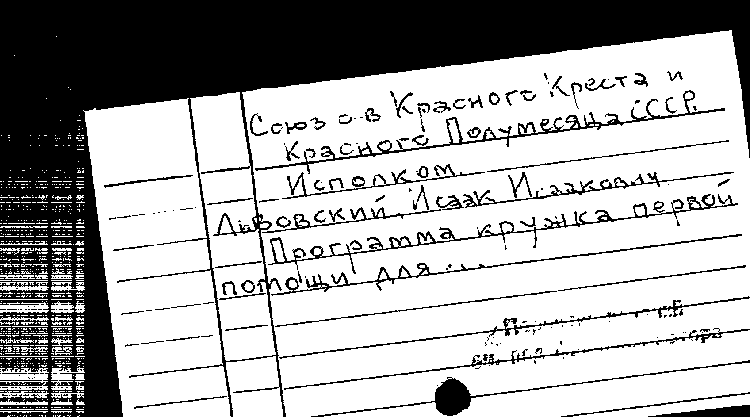 Союз о-в Красного Креста и
Красного Полумесяца СССР.
Исполком.
Львовский, Исаак Исаакович
Программа кружка первой
помощи для ...